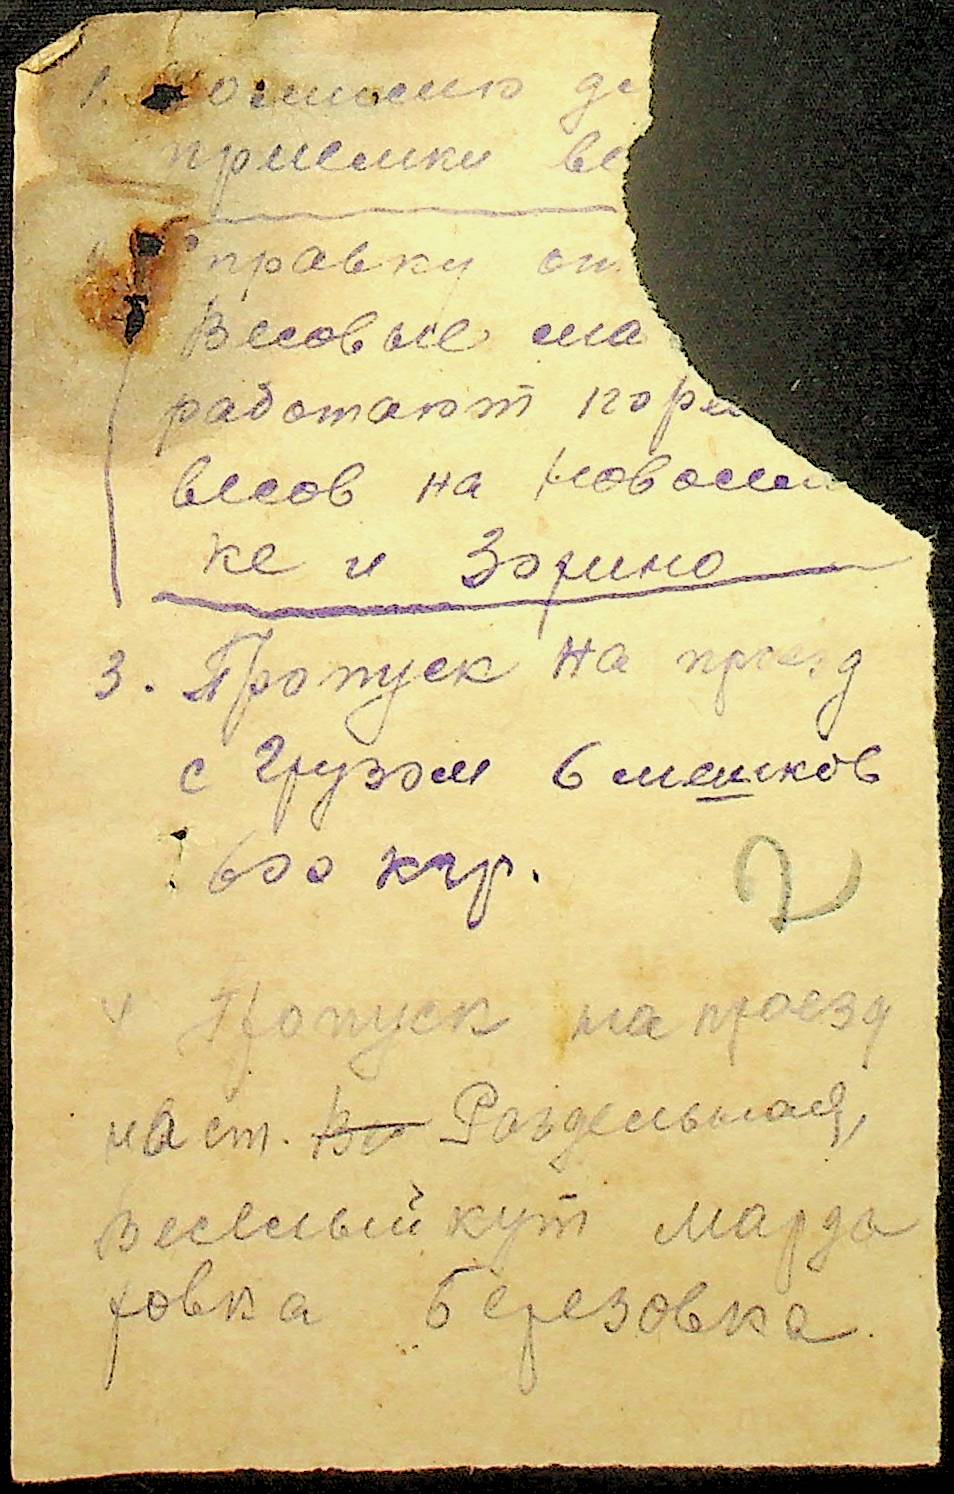 1. Комиссию дл
приемки ве
Справку от
Весовые ма
работают
весов на Новоси
ке и Зорино
3. Пропуск на проезд
с грузом 6 мешков
600 кгр.
2
4 Пропуск на проезд
на ст. Раздельная,
Веселый кут Марда
ровка Березовка.